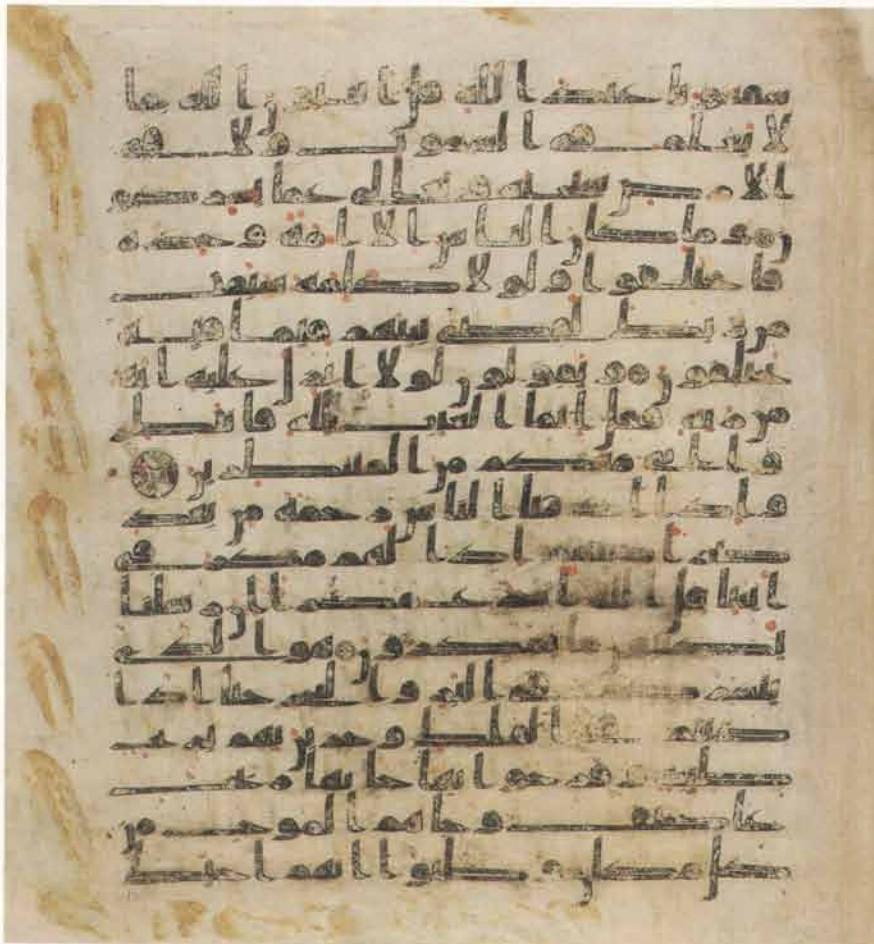 شفعونا عند الله قل اتنبون الله بما
لا يعلم في السموت ولا في
الارض سبحنه وتعلى عما يشركو
ن وما كان الناس الا امة وحدة
فاختلفوا ولولا كلمة سبقت
من ربك لقضي بينهم فيما فيه
يختلفون ويقولون لولا انزل عليه اية
من ربه فقل انما الغيب لله فانتظر
وا اني معكم من المنتظرين
واذا اذقنا الناس رحمة من بعد
ضرا مستهم اذا لهم مكر في
اياتنا قل الله اسرع مكرا ان رسلنا
يكتبون ما تمكرون هو الذي
يسيركم في البر والبحر حتى اذا
كنتم في الفلك وجرين بهم بريح
طيبة وفرحوا بها جاتها ريح
عاصف وجاهم الموج من
كل مكان وظنوا انهم احيط